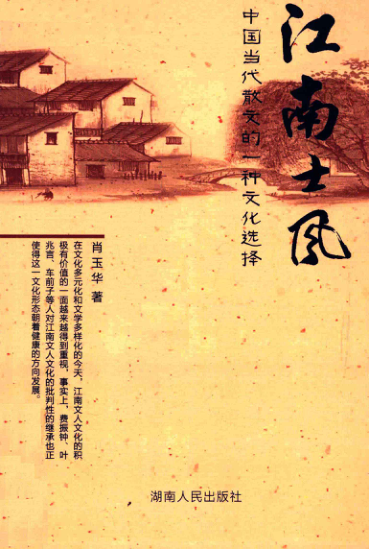 江南士风
中国当代散文的一种文化选择
肖玉华 著
在文化多元化和文学多样化的今天，江南文人文化的积
极有价值的一面越来越得到重视，事实上，费振钟、叶
兆言、车前子等人对江南文人文化的批判性的继承也正
使得这一文化形态朝着健康的方向发展。
湖南人民出版社